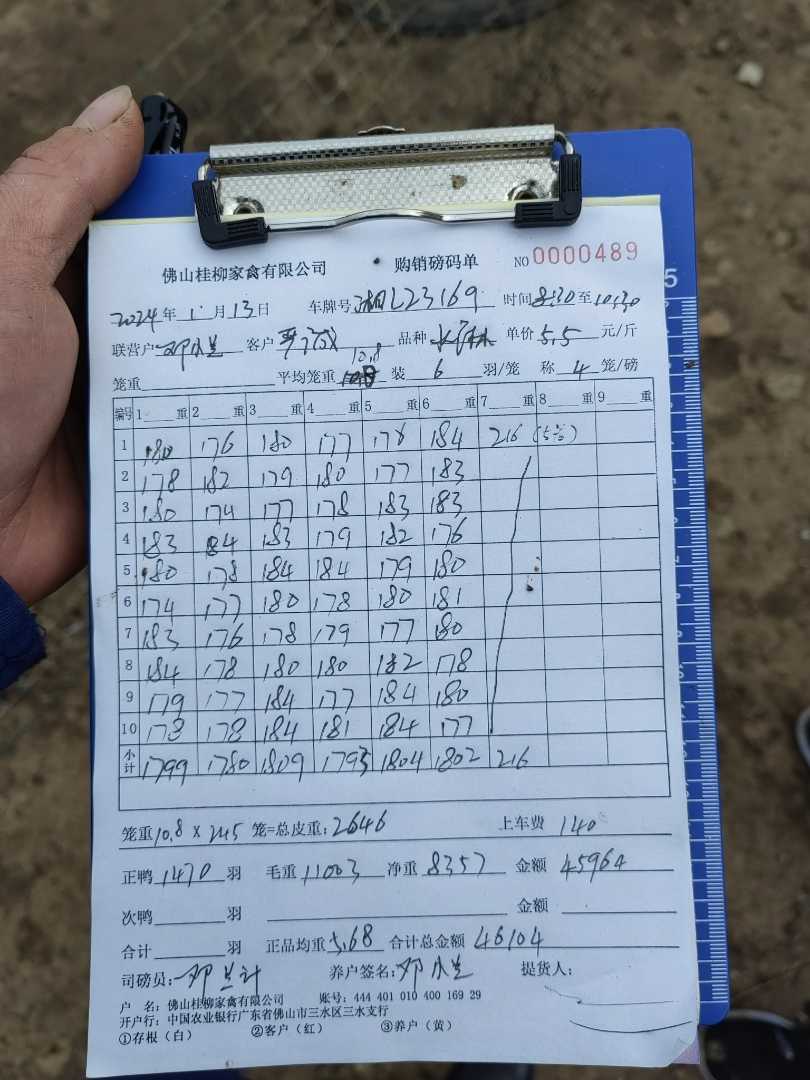 佛山桂柳家禽有限公司 购销磅码单 NO 0000489
2024年1月13日 车牌号湘L23169 时间8:30至10:30
联营户 客户 品种 单价5.5元/斤
10.8
笼重 平均笼重 装6羽/笼 称4笼/磅
编号 1 重 2 重 3 重 4 重 5 重 6 重 7 重 8 重 9 重
1 180 176 180 177 178 184 216 (5笼)
2 178 182 179 180 177 183
3 180 174 177 178 183 183
4 183 184 183 179 182 176
5 180 178 184 184 179 180
6 174 177 180 178 180 181
7 183 176 178 179 177 180
8 184 178 180 180 182 178
9 179 177 184 177 184 180
10 178 178 184 181 184 177
小计 1799 1780 1809 1793 1804 1802 216
笼重10.8×245笼=总皮重:2646 上车费 140
正鸭1470羽 毛重11003 净重8357 金额45964
次鸭 羽 金额
合计 羽 正品均重5.68 合计总金额46104
司磅员: 养户签名: 提货人:
户 名:佛山桂柳家禽有限公司 账号:444 401 010 400 169 29
开户行:中国农业银行广东省佛山市三水区三水支行
①存根(白) ②客户(红) ③养户(黄)